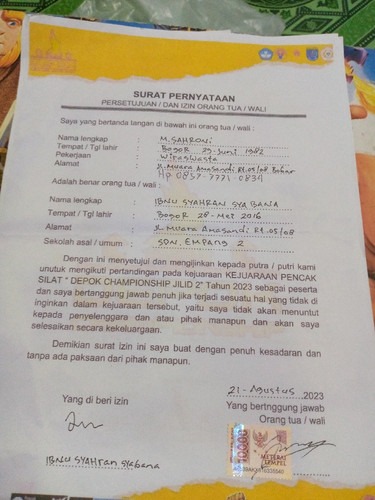 SURAT PERNYATAAN
PERSETUJUAN / DAN IZIN ORANG TUA / WALI
Saya yang bertanda tangan di bawah ini orang tua / wali :
Nama lengkap : M. SAHRONI
Tempat / Tgl lahir : Bogor 29-Juni 1982
Pekerjaan : Wiraswasta
Alamat : Jl. Muara Amasandi Rt.05/08
Hp 0857-7771-0834
Adalah benar orang tua / wali :
Nama lengkap : IBNU SYAHRAN SYABANA
Tempat / Tgl lahir : Bogor 28-Mei 2016
Alamat : Jl. Muara Amasandi Rt.05/08
Sekolah asal / umum : SDN. EMPANG 2
Dengan ini menyetujui dan mengijinkan kepada putra / putri kami
unutuk mengikuti pertandingan pada kejuaraan KEJUARAAN PENCAK
SILAT " DEPOK CHAMPIONSHIP JILID 2" Tahun 2023 sebagai peserta
dan saya bertanggung jawab penuh jika terjadi sesuatu hal yang tidak di
inginkan dalam kejuaraan tersebut, yaitu saya tidak akan menuntut
kepada penyelenggara dan atau pihak manapun dan akan saya
selesaikan secara kekeluargaan.
Demikian surat izin ini saya buat dengan penuh kesadaran dan
tanpa ada paksaan dari pihak manapun.
21-Agustus 2023
Yang di beri izin
Yang bertnggung jawab
Orang tua / wali
10000
METERAI
TEMPEL
IBNU SYAHRAN SYABANA